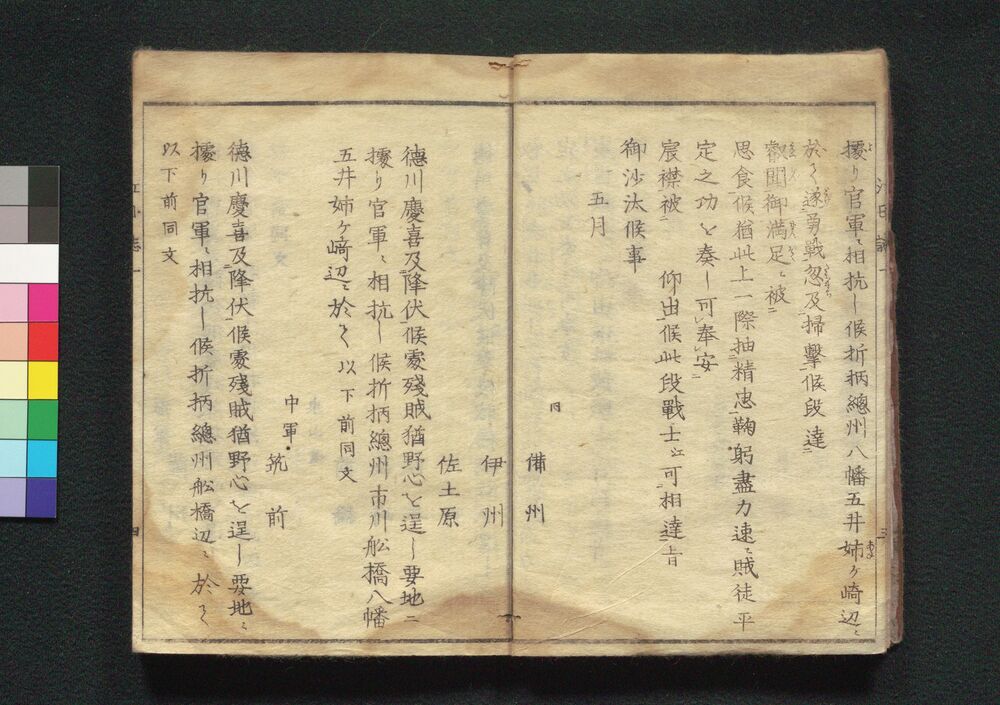 擾り官軍ニ相抗し候折柄總州八幡五井姉ヶ崎辺ニ
於て遂勇戰忽及掃撃候段 達ニ
叡聞御満足ニ被ニ
思食候猶此上一際抽精忠鞠躬盡力速ニ賊徒平
定之功を奏し可奉安ニ
宸襟被 仰出候此段戰士江可相達旨
御沙汰候事
五月
備州
伊州
佐土原
德川慶喜及降伏候處殘賊猶野心を逞し要地ニ
擾り官軍ニ相抗し候折柄總州市川舩橋八幡
五井姉ヶ崎辺ニ於て以下前同文
中軍
筑前
德川慶喜及降伏候處殘賊猶野心を逞し要地ニ
擾り官軍ニ相抗し候折柄總州舩橋辺ニ於て
以下前同文
三
四